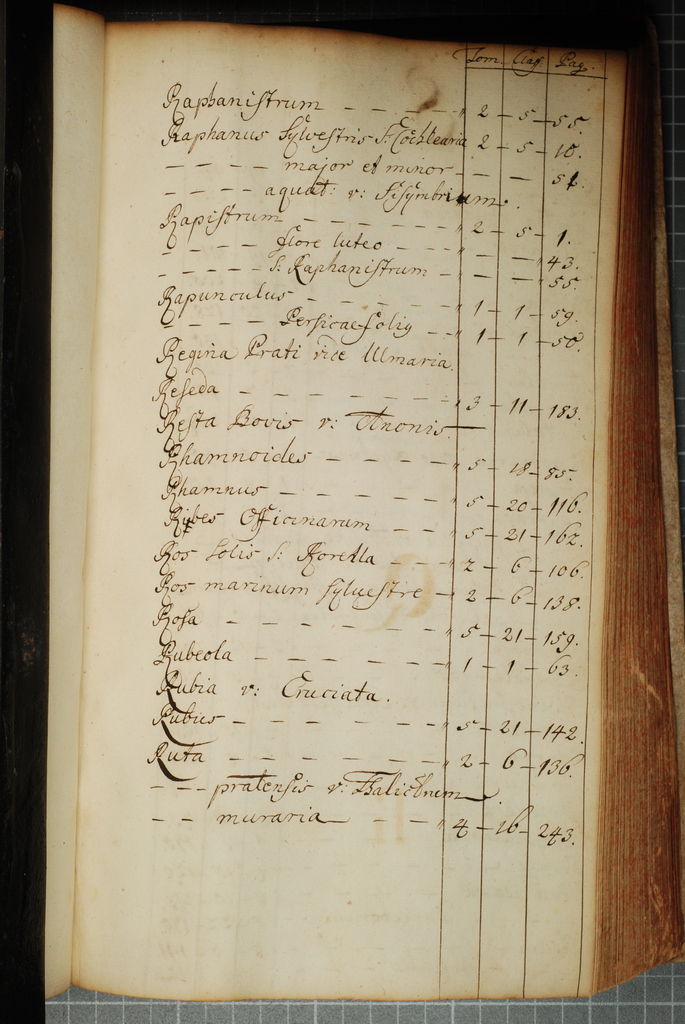 Tom. Claſ. Pag.
Raphaniſtrum - - - - " 2 - 5 - 55.
Raphanus Sylveſtris S: Cochlearia 2 - 5 - 10.
- - - - major et minor - - - 51.
- - - - aquat: v: Siſymbrium.
Rapiſtrum - - - - - - - 2 - 5 - 1.
- - - - - flore luteo - - - - 43.
- - - - - S: Raphaniſtrum - - - - " 55.
Rapunculus - - - - - - " 1 - 1 - 59.
- - - - Perſicaefolig - - " 1 - 1 - 50.
Regina Prati vide Ulmaria.
Reſeda - - - - - - - " 3 - 11 - 183.
Reſta Bovis v: Anonis.
Rhamnoides - - - - - " 5 - 18 - 85.
Rhamnus - - - - - - 5 - 20 - 116.
Ribes Officinarum - - " 5 - 21 - 162.
Ros Solis S: Rorella - - - " 2 - 6 - 106.
Ros marinum ſylveſtre - " 2 - 6 - 138.
Roſa - - - - - - - " 5 - 21 - 159.
Rubeola - - - - - - - " 1 - 1 - 63.
Rubia v: Cruciata.
Rubus - - - - - - " 5 - 21 - 142.
Ruta - - - - - - - " 2 - 6 - 136.
- - - pratenſis v: Thalictrum.
- - muraria - - - " 4 - 16 - 243.